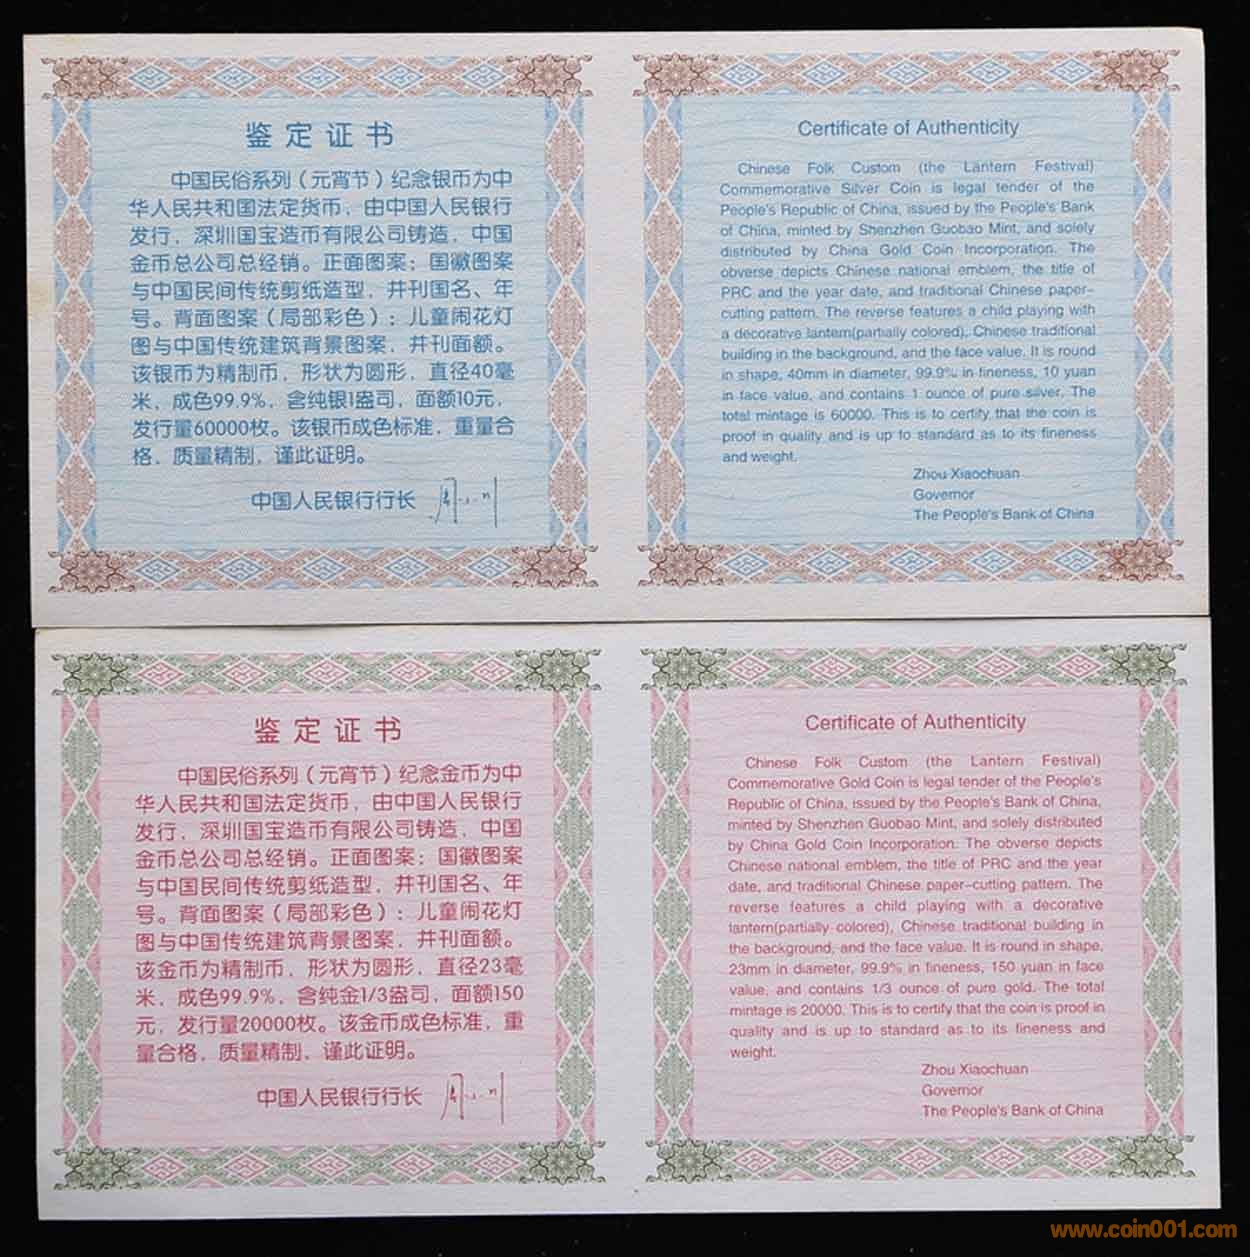 鉴定证书
中国民俗系列（元宵节）纪念银币为中
华人民共和国法定货币，由中国人民银行
发行，深圳国宝造币有限公司铸造，中国
金币总公司总经销。正面图案：国徽图案
与中国民间传统剪纸造型，并刊国名、年
号。背面图案（局部彩色）：儿童闹花灯
图与中国传统建筑背景图案，并刊面额。
该银币为精制币，形状为圆形，直径40毫
米，成色99.9%，含纯银1盎司，面额10元，
发行量60000枚。该银币成色标准，重量合
格，质量精制，谨此证明。
中国人民银行行长
Certificate of Authenticity
Chinese Folk Custom (the Lantern Festival)
Commemorative Silver Coin is legal tender of the
People's Republic of China, issued by the People's Bank
of China, minted by Shenzhen Guobao Mint, and solely
distributed by China Gold Coin Incorporation. The
obverse depicts Chinese national emblem, the title of
PRC and the year date, and traditional Chinese paper-
cutting pattern. The reverse features a child playing with
a decorative lantern(partially colored), Chinese traditional
building in the background, and the face value. It is round
in shape, 40mm in diameter, 99.9% in fineness, 10 yuan
in face value, and contains 1 ounce of pure silver. The
total mintage is 60000. This is to certify that the coin is
proof in quality and is up to standard as to its fineness
and weight.
Zhou Xiaochuan
Governor
The People's Bank of China
鉴定证书
中国民俗系列（元宵节）纪念金币为中
华人民共和国法定货币，由中国人民银行
发行，深圳国宝造币有限公司铸造，中国
金币总公司总经销。正面图案：国徽图案
与中国民间传统剪纸造型，并刊国名、年
号。背面图案（局部彩色）：儿童闹花灯
图与中国传统建筑背景图案，并刊面额。
该金币为精制币，形状为圆形，直径23毫
米，成色99.9%，含纯金1/3盎司，面额150
元，发行量20000枚。该金币成色标准，重
量合格，质量精制，谨此证明。
中国人民银行行长
Certificate of Authenticity
Chinese Folk Custom (the Lantern Festival)
Commemorative Gold Coin is legal tender of the People's
Republic of China, issued by the People's Bank of China,
minted by Shenzhen Guobao Mint, and solely distributed
by China Gold Coin Incorporation. The obverse depicts
Chinese national emblem, the title of PRC and the year
date, and traditional Chinese paper-cutting pattern. The
reverse features a child playing with a decorative
lantern(partially colored), Chinese traditional building in
the background, and the face value. It is round in shape,
23mm in diameter, 99.9% in fineness, 150 yuan in face
value, and contains 1/3 ounce of pure gold. The total
mintage is 20000. This is to certify that the coin is proof in
quality and is up to standard as to its fineness and
weight.
Zhou Xiaochuan
Governor
The People's Bank of China
www.coin001.com